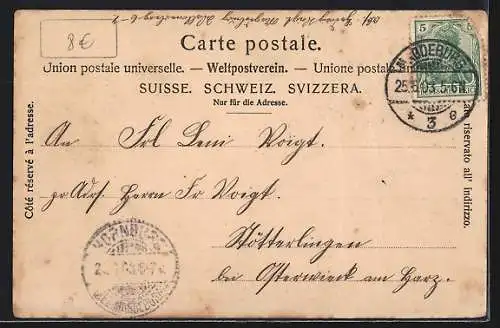 8 €
Abs. Georg Voigt, Magdeburg
Carte postale.
Union postale universelle. – Weltpostverein. – Unione postale
SUISSE. SCHWEIZ. SVIZZERA.
Nur für die Adresse.
Côté réservé à l'adresse.
riservato all' indirizzo.
5 5
MAGDEBURG
25.5.03.5-6N.
* 3 e
An Frl Leni Voigt.
pr. Adr. Herrn Fr Voigt.
Stötterlingen
bei Osterwieck am Harz.
HORNBURG